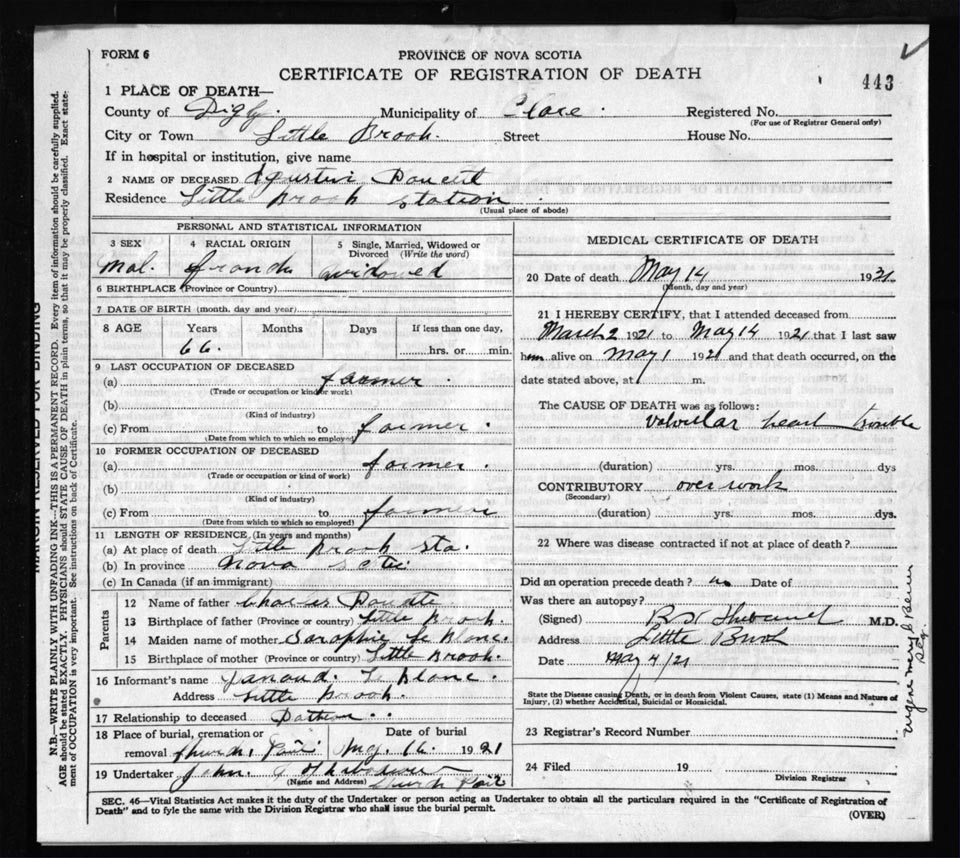 FORM 6
PROVINCE OF NOVA SCOTIA
CERTIFICATE OF REGISTRATION OF DEATH
443
1 PLACE OF DEATH—
County of Digby. Municipality of Clare. Registered No.
(For use of Registrar General only)
City or Town Little Brook. Street House No.
If in hospital or institution, give name
2 NAME OF DECEASED
Residence Little Brook Station
(Usual place of abode)
PERSONAL AND STATISTICAL INFORMATION
3 SEX 4 RACIAL ORIGIN 5 Single, Married, Widowed or Divorced (Write the word)
Mal. widowed
6 BIRTHPLACE (Province or Country)
7 DATE OF BIRTH (month, day and year)
8 AGE Years Months Days If less than one day,
66. hrs. or min.
9 LAST OCCUPATION OF DECEASED
(a) farmer.
(Trade or occupation or kind of work)
(b)
(Kind of industry)
(c) From to farmer.
(Date from which to which so employed)
10 FORMER OCCUPATION OF DECEASED
(a) farmer.
(Trade or occupation or kind of work)
(b)
(Kind of industry)
(c) From to farmer
(Date from which to which so employed)
11 LENGTH OF RESIDENCE (In years and months)
(a) At place of death Little Brook Sta.
(b) In province Nova
(c) In Canada (if an immigrant)
Parents
12 Name of father Charles
13 Birthplace of father (Province or country) Little Brook.
14 Maiden name of mother Le Blanc.
15 Birthplace of mother (Province or country) Little Brook.
16 Informant's name Le Blanc.
Address Little Brook.
17 Relationship to deceased
18 Place of burial, cremation or removal Church Date of burial 16. 1921
19 Undertaker John.
(Name and Address) Church
MEDICAL CERTIFICATE OF DEATH
20 Date of death May 14 19
(Month, day and year)
21 I HEREBY CERTIFY, that I attended deceased from
March 2 1921 to May 14 1921 that I last saw
him alive on May 1 1921 and that death occurred, on the
date stated above, at m.
The CAUSE OF DEATH was as follows:
valvular heart trouble
(duration) yrs. mos. dys
CONTRIBUTORY over work
(Secondary)
(duration) yrs. mos. dys.
22 Where was disease contracted if not at place of death?
Did an operation precede death? no Date of
Was there an autopsy?
(Signed) M.D.
Address Little Brook
Date May 4/21
State the Disease causing Death, or in death from Violent Causes, state (1) Means and Nature of
Injury, (2) whether Accidental, Suicidal or Homicidal.
23 Registrar's Record Number
24 Filed 19
Division Registrar
SEC. 46—Vital Statistics Act makes it the duty of the Undertaker or person acting as Undertaker to obtain all the particulars required in the "Certificate of Registration of
Death" and to fyle the same with the Division Registrar who shall issue the burial permit.
(OVER)
MARGIN RESERVED FOR BINDING
N.B.—WRITE PLAINLY WITH UNFADING INK—THIS IS A PERMANENT RECORD. Every item of information should be carefully supplied.
AGE should be stated EXACTLY. PHYSICIANS should STATE CAUSE OF DEATH in plain terms, so that it may be properly classified. Exact state-
ment of OCCUPATION is very important. See instructions on back of Certificate.